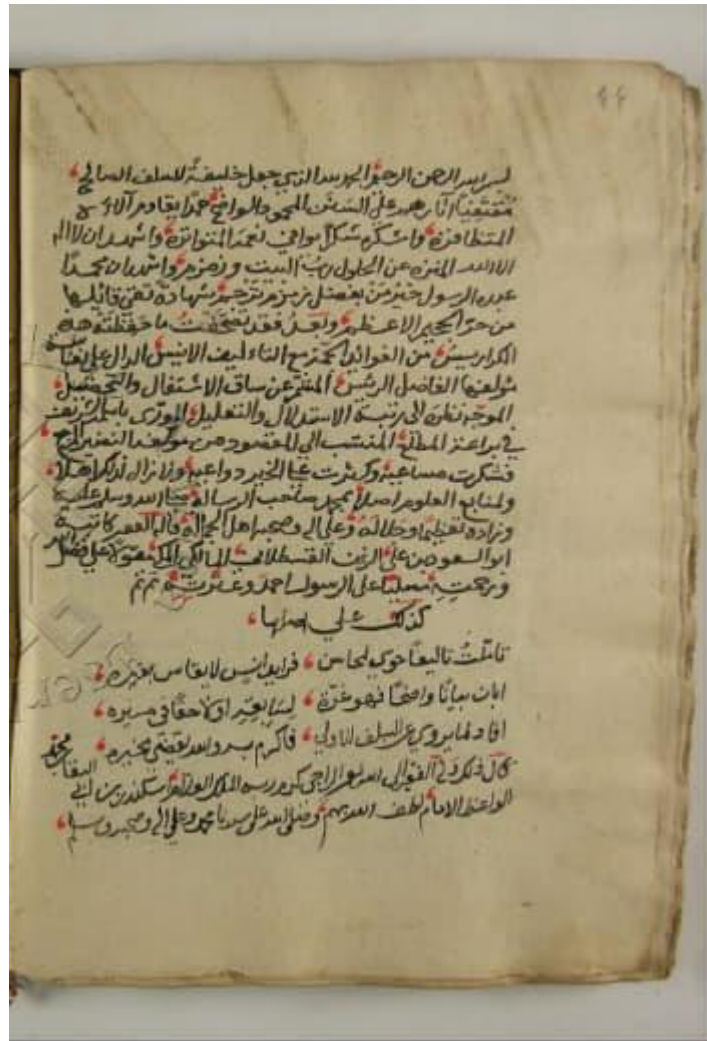 ٤٤
بسم الله الرحمن الرحيم الحمد لله الذي جعل خليفةً للسلف الصالح
مقتفيًا آثارهم على السنن المحمود الواضح حمدًا يقاوم آلاءه
المتظافرة واشكره شكرًا يوافي نعمه المتواترة واشهد ان لا اله
الا الله المنزه عن الحلول رب البيت وزمزم واشهد ان محمدًا
عبده الرسول خير من بفضل زمزم ترجم شهادة تقي قائلها
من حر الجحيم الاعظم وبعد فقد تصفحت ما حفظته هذه
الكراريس من الفوائد مع التاءليف الانيس الدال على نفاسة
مؤلفها الفاضل الرئيس المشمر عن ساق الاشتغال والتحصيل
الموجه نظره الى رتبة الاستدلال والتعليل المورى باسمه الشريف
في براعة المطلع المنتسب الى المقصود من مؤلفه
فشكرت مساعيه وكثرت على الخير دواعيه ولا زال لذلك اهلا
ولمنابع العلوم اصلا بمحمد صاحب الرسالة صلى الله وسلم عليه
وزاده تعظيمًا وجلالة وعلى اله وصحبه اهل الجلالة قاله الفقير كاتبه
ابو السعود بن على الزين القسطلاني المالكي المكي على فضل الله
ورحمته مصليًا على الرسول احمد وعترته تم تم
كذلك على اصلها
تاملت تاليفًا حوى لمحاسن فرايد انس لا يقاس بغيره
ابان بيانًا واضحًا فهو غرة لاحقا في مسيره
افاد لما يروي عن السلف الاولي فاكرم به والله يقضي بخيره
قال ذلك الفقير الى الله الراجي كرم ربه اسكندر بن
الواعظ الامام لطف الله بهم وصلى الله على سيدنا محمد وعلى اله وصحبه وسلم